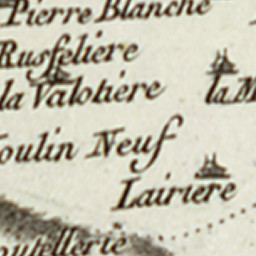 Pierre Blanche
Rusfeliere
la Valotiére
la
Moulin Neuf
Lairiere